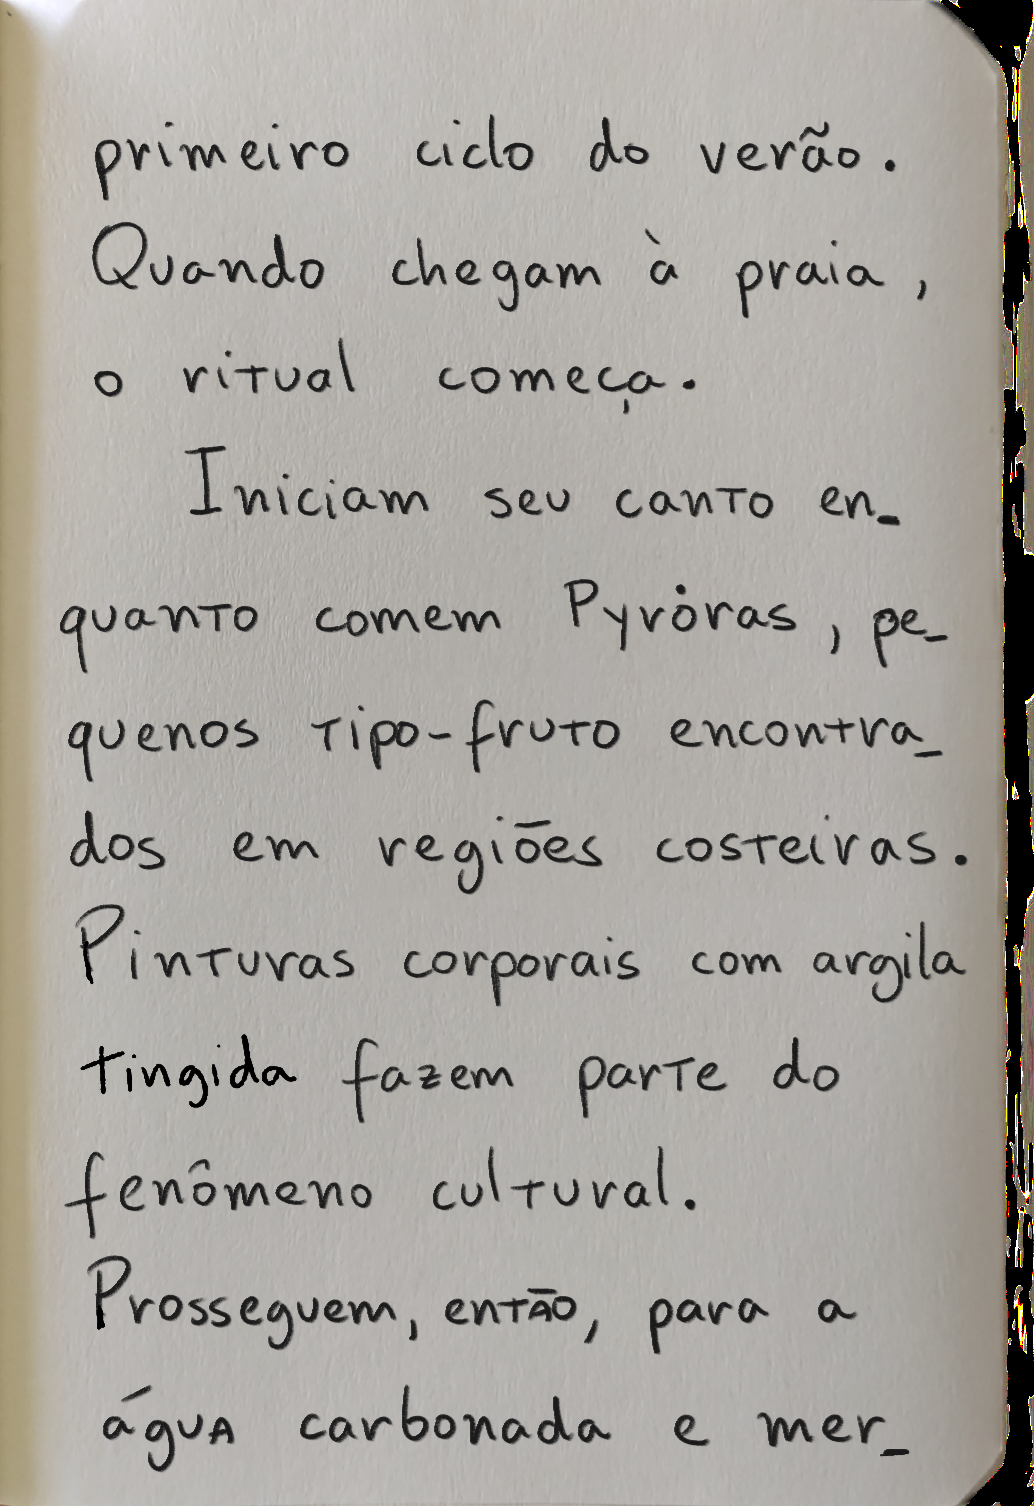 primeiro ciclo do verão.
Quando chegam à praia,
o ritual começa.
Iniciam seu canto en_
quanto comem Pyrȯras, pe_
quenos tipo-fruto encontra_
dos em regiões costeiras.
Pinturas corporais com argila
tingida fazem parte do
fenômeno cultural.
Prosseguem, então, para a
água carbonada e mer_